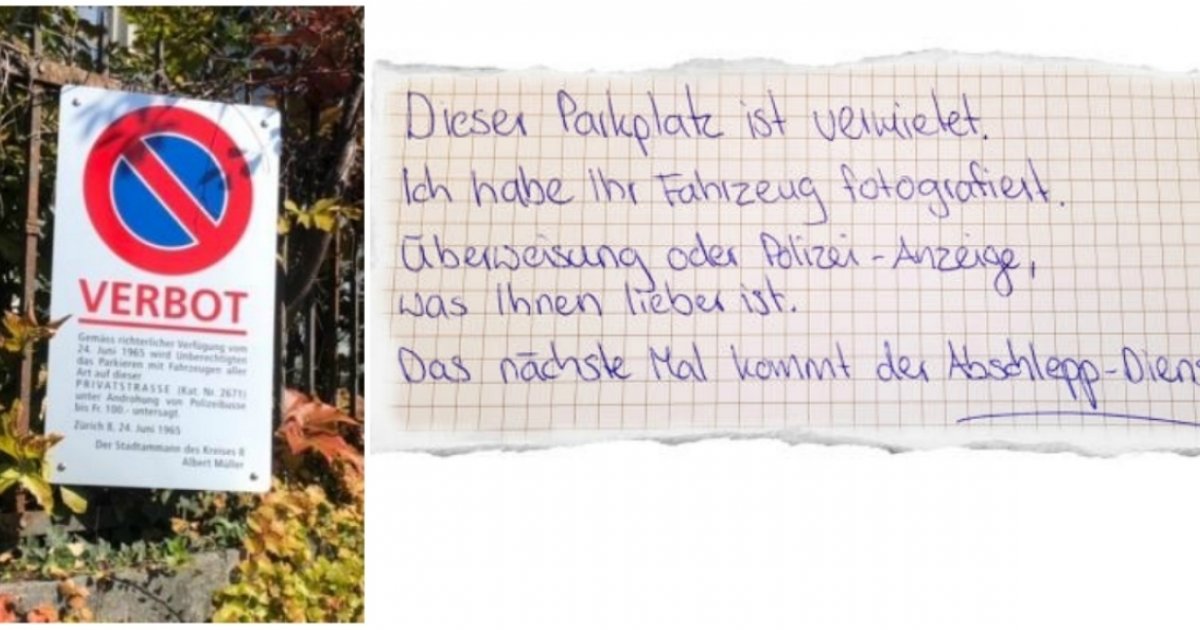 VERBOT
Gemäss richterlicher Verfügung vom
24. Juni 1965 wird Unberechtigten
das Parkieren mit Fahrzeugen aller
Art auf dieser
PRIVATSTRASSE (Kat. Nr. 2671)
unter Androhung von Polizeibusse
bis Fr. 100.- untersagt.
Zürich 8, 24. Juni 1965
Der Stadtammann des Kreises 8
Albert Müller
Dieser Parkplatz ist vermietet.
Ich habe Ihr Fahrzeug fotografiert.
Überweisung oder Polizei-Anzeige,
was Ihnen lieber ist.
Das nächste Mal kommt der Abschlepp-Diens